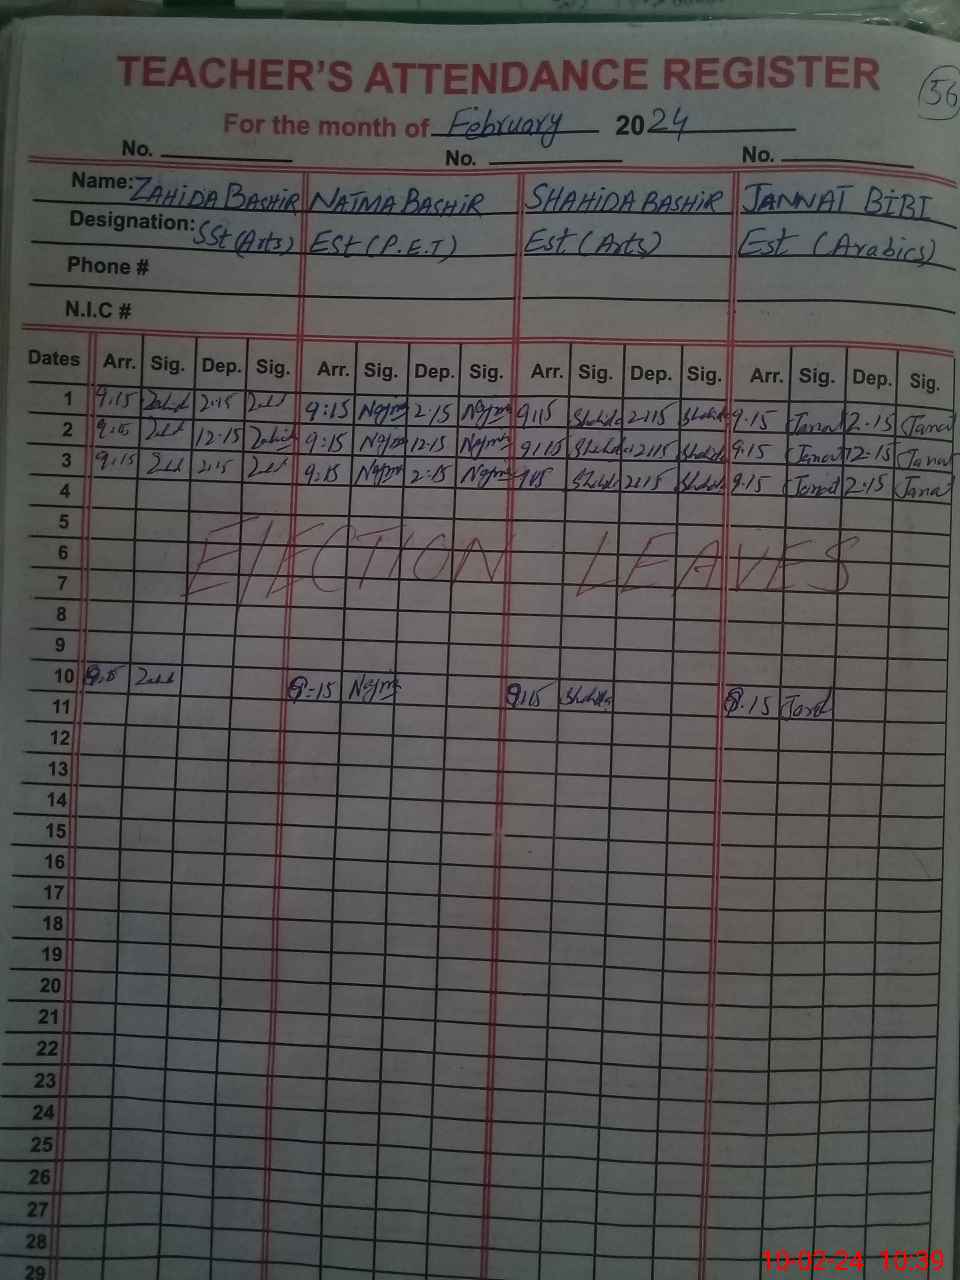 TEACHER'S ATTENDANCE REGISTER
56
For the month of February 2024
No. No. No.
Name: ZAHIDA BASHIR NAJMA BASHIR SHAHIDA BASHIR JANNAT BIBI
Designation: SSt (Arts) ESt (P.E.T) Est (Arts) Est (Arabics)
Phone #
N.I.C #
Dates Arr. Sig. Dep. Sig. Arr. Sig. Dep. Sig. Arr. Sig. Dep. Sig. Arr. Sig. Dep. Sig.
1 9.15 2.15 9:15 Najma 2.15 Najma 9:15 Shahida 2:15 Shahida 9.15 Janat 2.15 Janat
2 9.15 12.15 Zahida 9:15 Najma 12.15 Najma 9:15 Shahida 12:15 Shahida 9.15 Janat 12-15 Janat
3 9:15 2:15 9:15 Najma 2:15 Najma 9:15 Shahida 2:15 Shahida 9.15 Janat 2.15 Janat
4
5
6 ElECTION LEAVES
7
8
9
10 9.15 9-15 Najma 9:15 Shahida 9.15 Janat
11
12
13
14
15
16
17
18
19
20
21
22
23
24
25
26
27
28
29
10-02-24 10:39